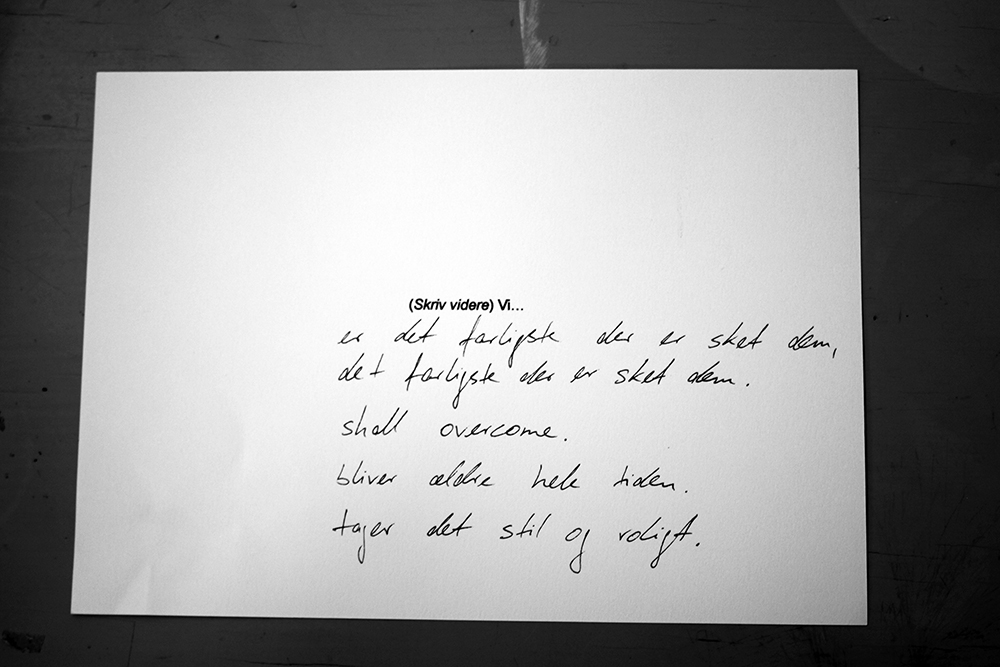 (Skriv videre) Vi...
er det farligste der er sket dem,
det farligste der er sket dem.
shall overcome.
bliver ældre hele tiden.
tager det stil og roligt.